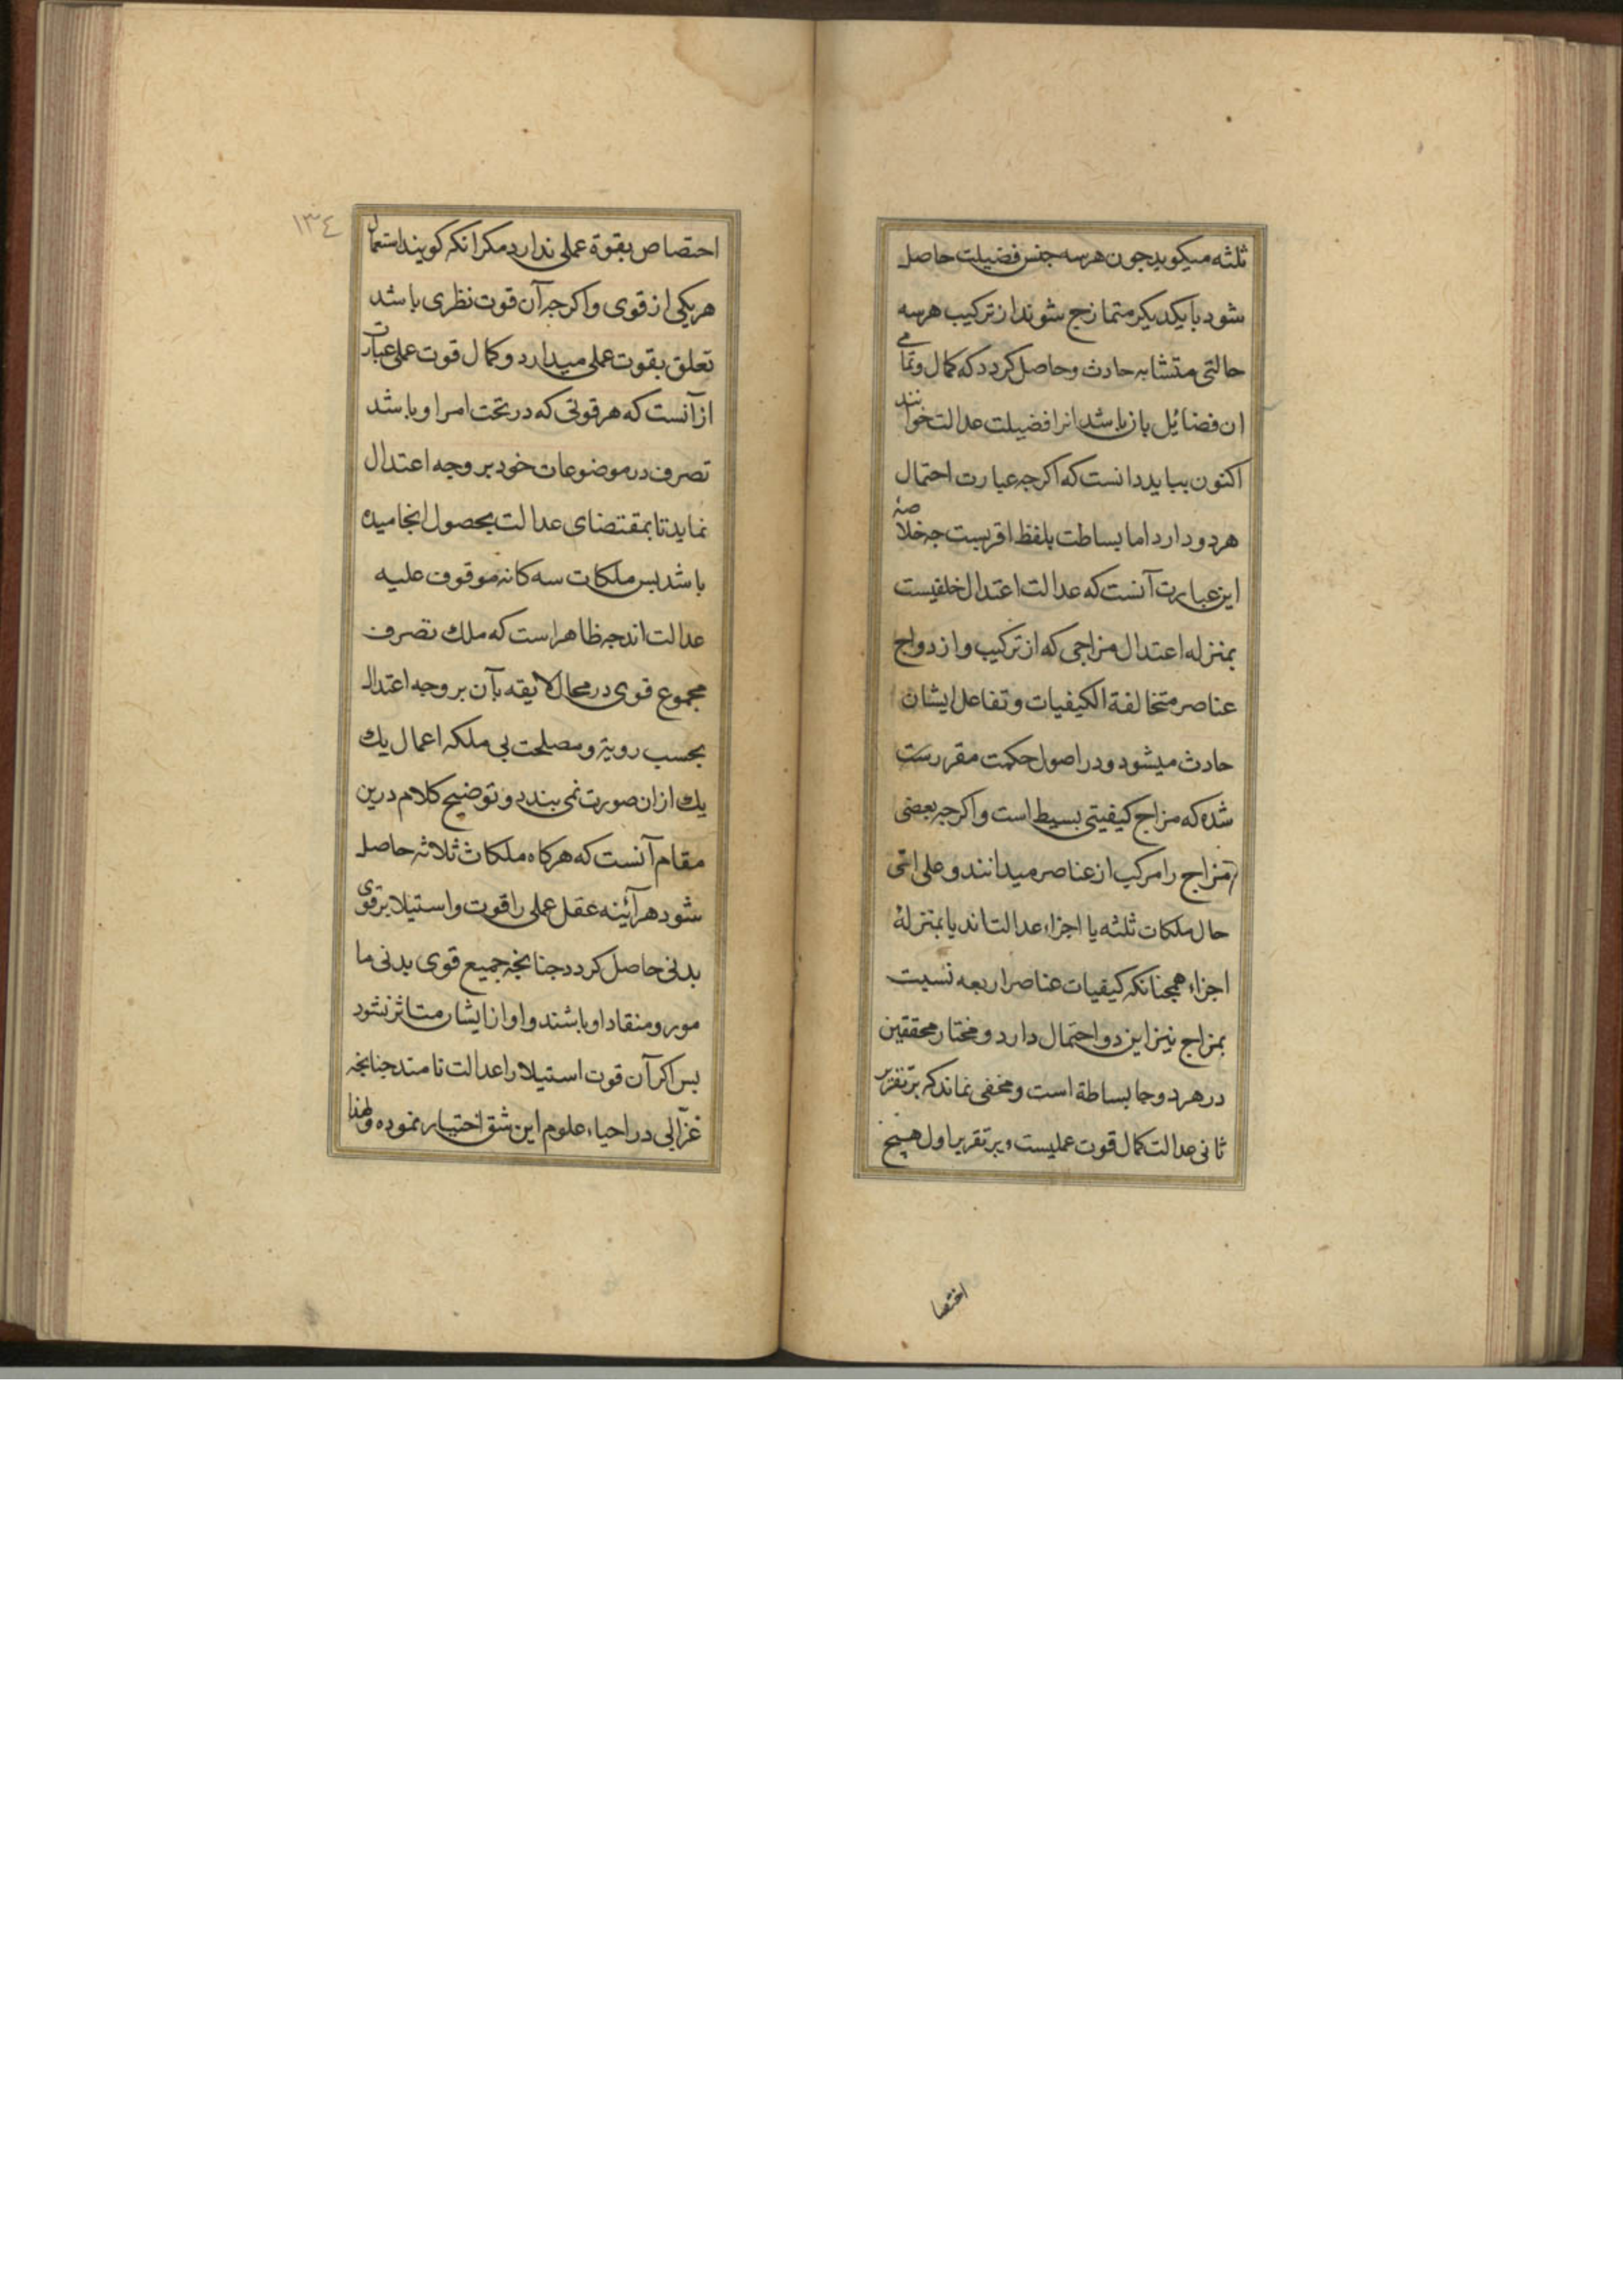 ثلثه میکوید جون هرسه جنس فضیلت حاصل
شود با یکدیکر متمازج شوند از ترکیب هرسه
حالتی متشابه حادث و حاصل کردد که کمال و تمامی
ان فضائل بان باشد انرا فضیلت عدالت خوانند
اکنون بباید دانست که اکرجه عبارت احتمال
هر دو دارد اما بساطت بلفظ اقربست جه خلاصهٔ
این عبارت آنست که عدالت اعتدال خلقیست
بمنزله اعتدال مزاجی که از ترکیب و ازدواج
عناصر متخالفة الکیفیات و تفاعل ایشان
حادث میشود و در اصول حکمت مقررست
شده که مزاج کیفیتی بسیط است و اکرجه بعضی
مزاج را مرکب از عناصر میدانند و علی ای
حال ملکات ثلثه یا اجزاء عدالت اند یا بمنزلهٔ
اجزاء همجنانکه کیفیات عناصر اربعه نسبت
بمزاج نیز این دو احتمال دارد و مختار محققین
در هر دو جا بساطة است و مخفی نماند که بر تقریر
ثانی عدالت کمال قوت عملیست و بر تقریر اول هیج
اختصا
١٣٤
احتصاص بقوة عملی ندارد مکر انکه کویند استعمال
هر یکی از قوی و اکرجه آن قوت نظری باشد
تعلق بقوت عملی میدارد و کمال قوت عملی عبارت
از آنست که هر قوتی که در تحت امر او باشد
تصرف در موضوعات خود بر وجه اعتدال
نماید تا بمقتضای عدالت بحصول انجامیده
باشد بس ملکات سه کانه موقوف علیه
عدالت اند جه ظاهر است که ملك تصرف
مجموع قوی در محال لایقه بآن بر وجه اعتدال
بحسب رویة و مصلحت بی ملکه اعمال یك
یك ازان صورت نمی بندد و توضیح کلام درین
مقام آنست که هرکاه ملکات ثلاثه حاصل
شود هرآئینه عقل عملی را قوت و استیلا بر قوی
بدنی حاصل کردد جنانجه جمیع قوی بدنی ما
مور و منقاد او باشند و او از ایشان متاثر نشود
بس اکر آن قوت استیلا را عدالت نامند جنانجه
غزّالی در احیاء علوم این شق اختیار نموده و لهذا